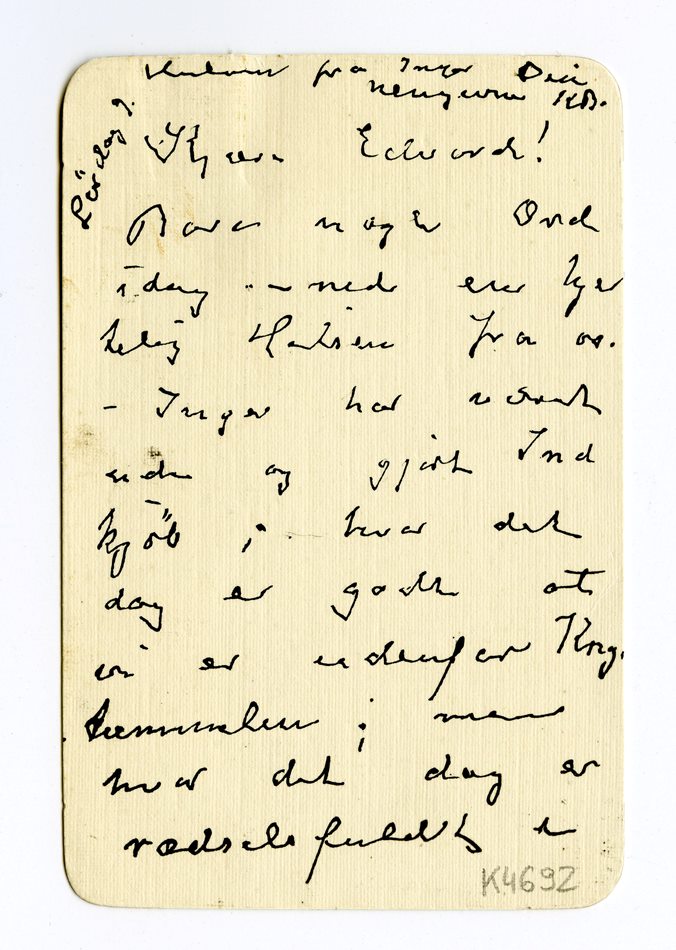 Hilsener fra Inger Din
hengivne KB.
Lördag 9.
Kjære Edvard!
Bare noger Ord
idag med en hjer
telig Hilsen fra os.
– Inger har været
ude og gjort Ind
kjöb; hvor det
dog er godt at
vi er udenfor Krig.
tummelen; men
hvor det dog er
rædselsfuldt
K4692